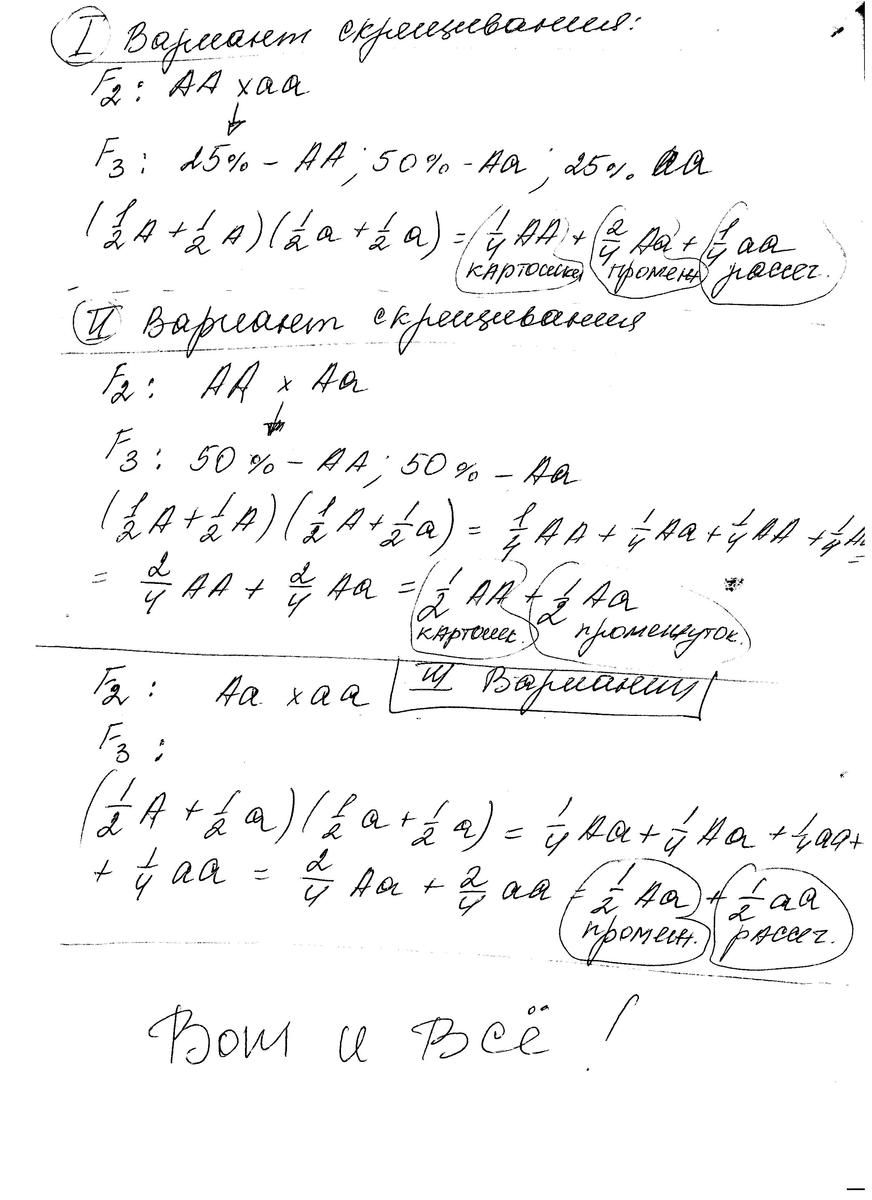 I Вариант скрещивания:
F2: AA x aa
↓
F3: 25% - AA; 50% - Aa; 25% aa
(1/2 A + 1/2 A)(1/2 a + 1/2 a) = 1/4 AA + 2/4 Aa + 1/4 aa
картошка промеж рассеч.
II Вариант скрещивания
F2: AA x Aa
↓
F3: 50% - AA; 50% - Aa
(1/2 A + 1/2 A)(1/2 A + 1/2 a) = 1/4 AA + 1/4 Aa + 1/4 AA + 1/4 Aa =
= 2/4 AA + 2/4 Aa = 1/2 AA + 1/2 Aa
картош. промежуток.
F2: Aa x aa III Вариант
F3:
(1/2 A + 1/2 a)(1/2 a + 1/2 a) = 1/4 Aa + 1/4 Aa + 1/4 aa +
+ 1/4 aa = 2/4 Aa + 2/4 aa = 1/2 Aa + 1/2 aa
промеж. рассеч.
Вот и Всё!